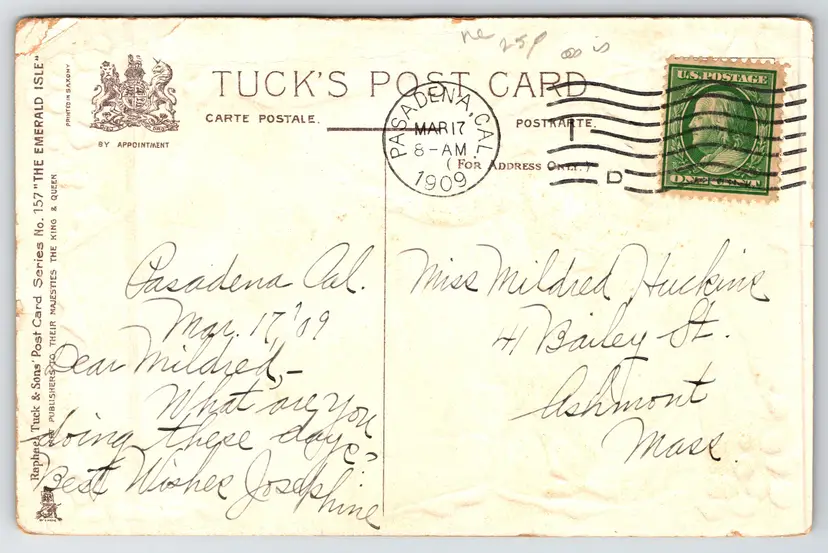 ne 25p as is
TUCK'S POST CARD
CARTE POSTALE.
POSTKARTE.
(FOR ADDRESS ONLY.)
BY APPOINTMENT
PRINTED IN SAXONY
Raphael Tuck & Sons' Post Card Series No. 157 "THE EMERALD ISLE"
ART PUBLISHERS TO THEIR MAJESTIES THE KING & QUEEN
PASADENA, CAL.
MAR 17
8-AM
1909
D
U.S. POSTAGE
ONE CENT
Pasadena Cal.
Mar. 17 '09
Dear Mildred,-
What are you
doing these days?
Best Wishes Josephine
Miss Mildred Huckins
41 Bailey St.
Ashmont
Mass.